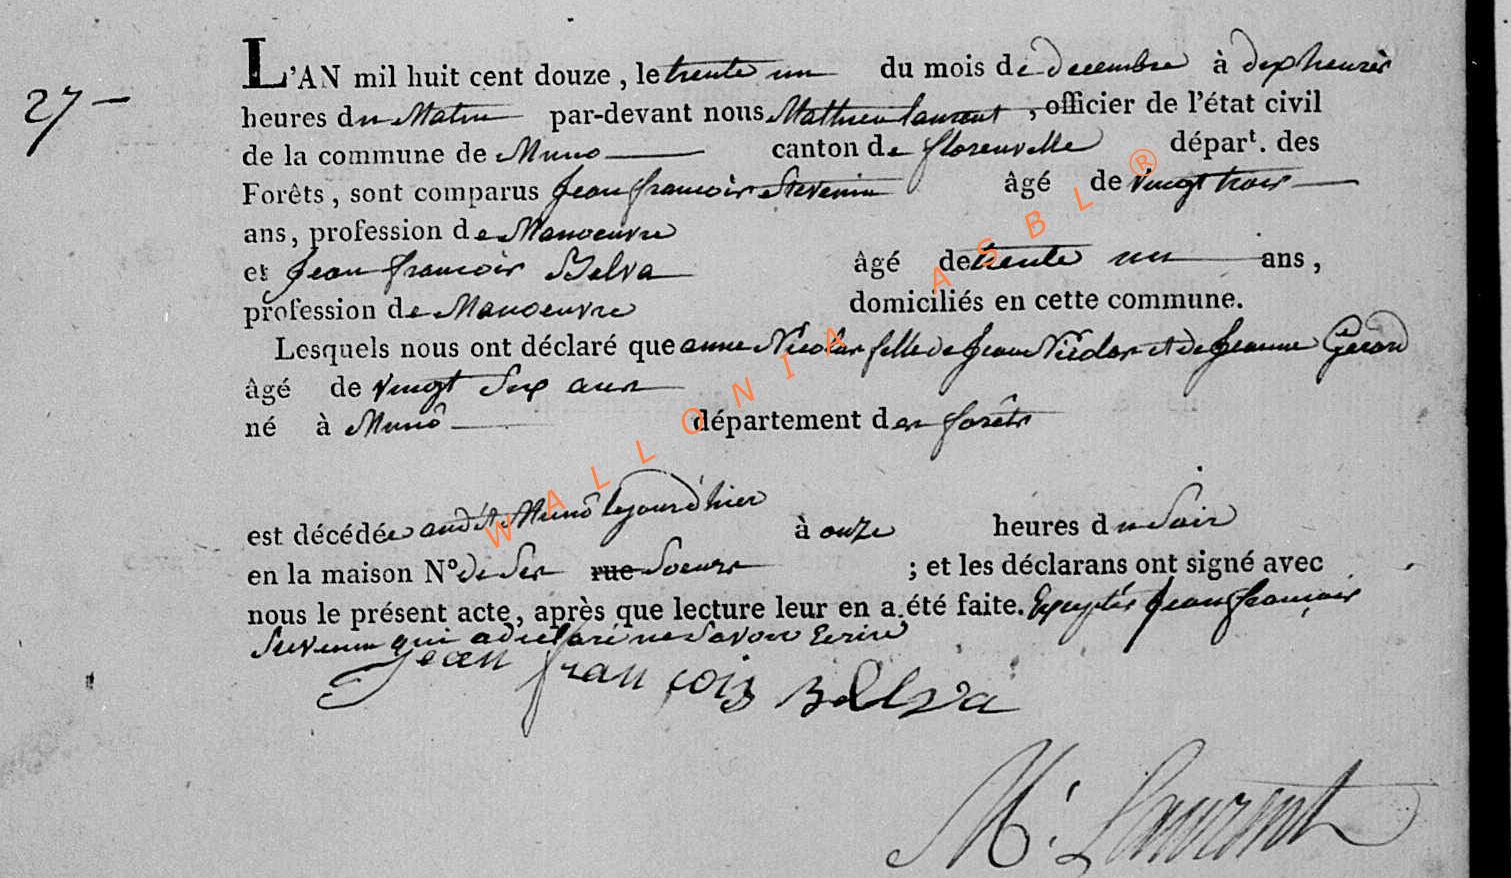 27 —
L'AN mil huit cent douze, le trente un du mois de decembre à dix heures
heures du Matin par-devant nous Mathieu laurent, officier de l'état civil
de la commune de Muno canton de florenville départ. des
Forêts, sont comparus Jean françois Stevenin âgé de vingt trois
ans, profession de Manoeuvre
et Jean françois Belva âgé de trente un ans,
profession de Manoeuvre domiciliés en cette commune.
Lesquels nous ont déclaré que anne Nicolas fille de Jean Nicolas et de Jeanne Gerard
âgé de vingt Six ans
né à Munô département des forêts
est décédée audit Munô le jour d'hier à onze heures du Soir
en la maison N° de Ses rue Soeurs ; et les déclarans ont signé avec
nous le présent acte, après que lecture leur en a été faite. Exceptés Jean françois
Stevenin qui a declaré ne Savoir Ecrire
jean françois Belva
M. Laurent
WALLONIA ASBL ®